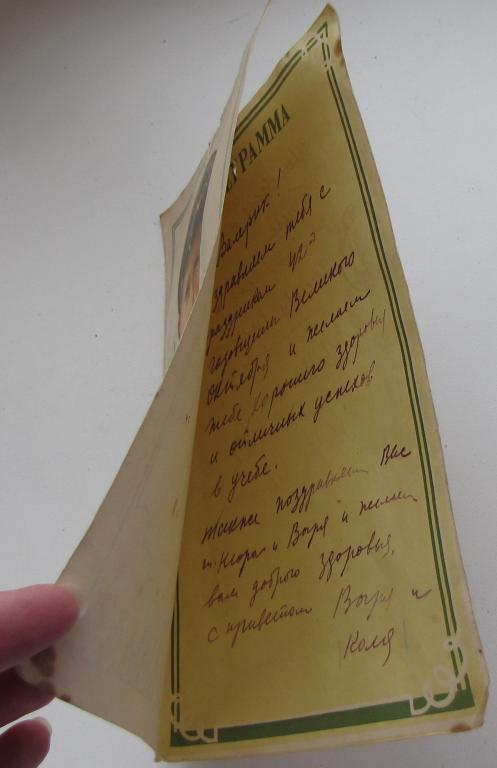 ГРАММА
Валерик!
здравляем тебя с
раздником 42ᵃ
годовщины Великого
октября и желаем
тебе хорошего здоровья
и отличных успехов
в учебе.
также поздравляем Вас
и желаем
вам доброго здоровья.
с приветом Воря и
Коля